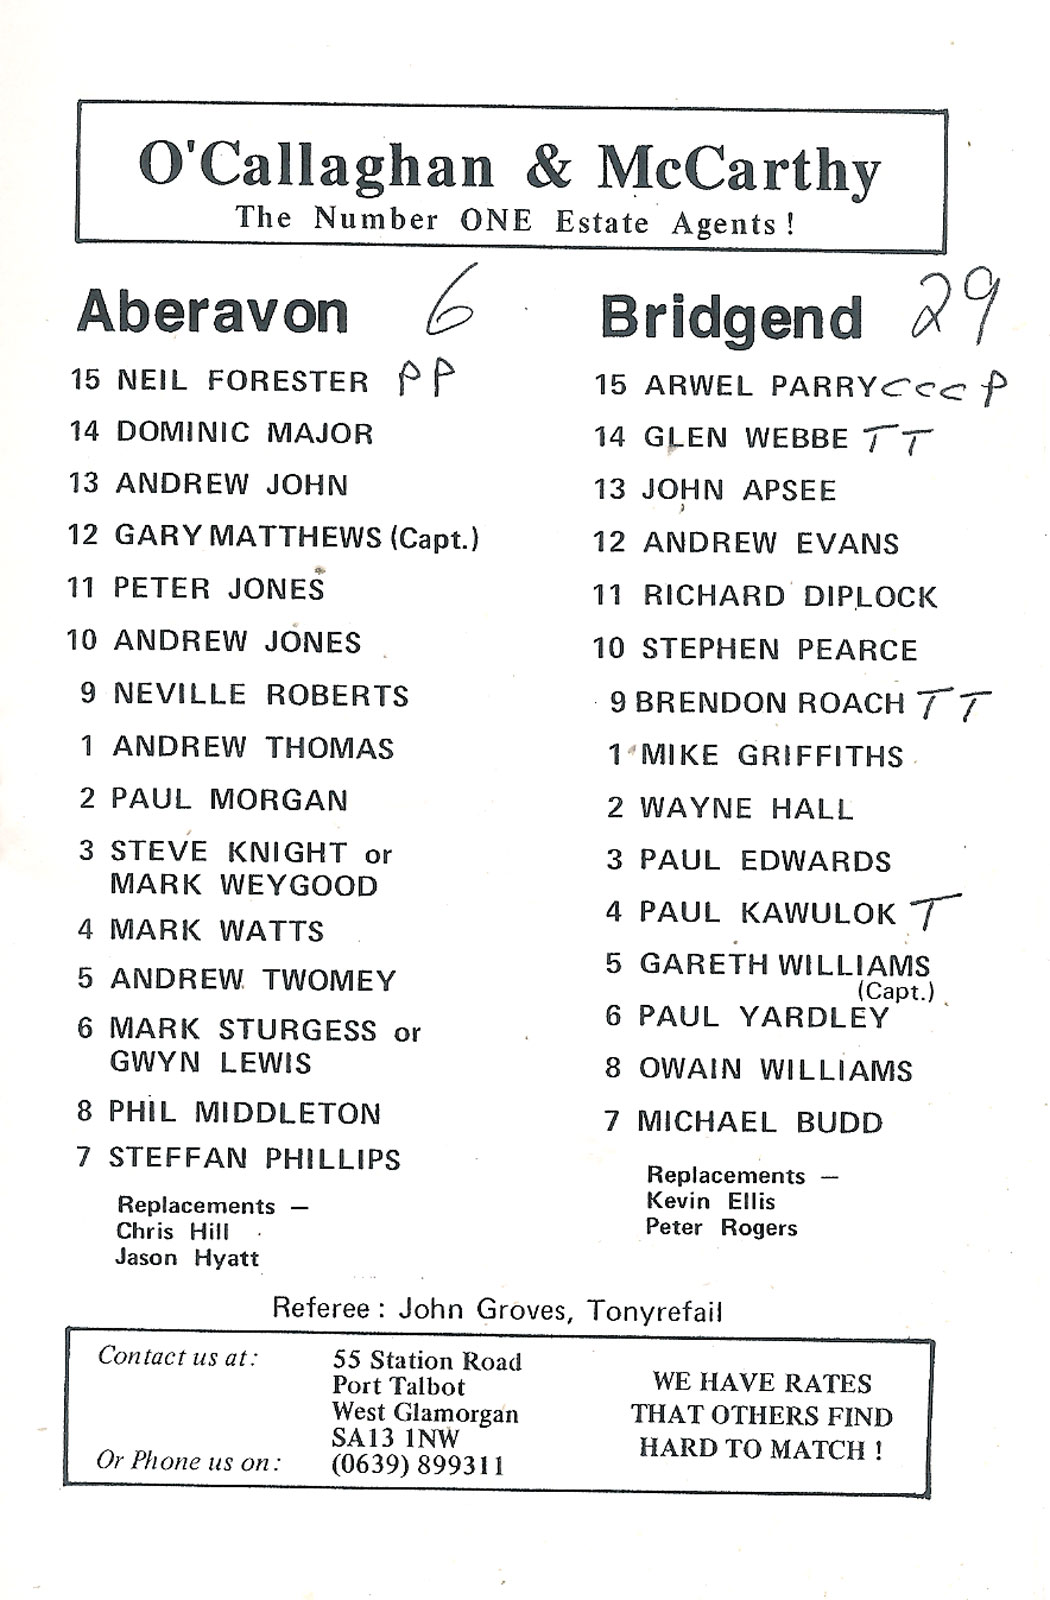 O'Callaghan & McCarthy
The Number ONE Estate Agents !
Aberavon 6
15 NEIL FORESTER P P
14 DOMINIC MAJOR
13 ANDREW JOHN
12 GARY MATTHEWS (Capt.)
11 PETER JONES
10 ANDREW JONES
9 NEVILLE ROBERTS
1 ANDREW THOMAS
2 PAUL MORGAN
3 STEVE KNIGHT or
MARK WEYGOOD
4 MARK WATTS
5 ANDREW TWOMEY
6 MARK STURGESS or
GWYN LEWIS
8 PHIL MIDDLETON
7 STEFFAN PHILLIPS
Replacements —
Chris Hill
Jason Hyatt
Bridgend 29
15 ARWEL PARRY C C C P
14 GLEN WEBBE T T
13 JOHN APSEE
12 ANDREW EVANS
11 RICHARD DIPLOCK
10 STEPHEN PEARCE
9 BRENDON ROACH T T
1 MIKE GRIFFITHS
2 WAYNE HALL
3 PAUL EDWARDS
4 PAUL KAWULOK T
5 GARETH WILLIAMS
(Capt.)
6 PAUL YARDLEY
8 OWAIN WILLIAMS
7 MICHAEL BUDD
Replacements —
Kevin Ellis
Peter Rogers
Referee : John Groves, Tonyrefail
Contact us at :
55 Station Road
Port Talbot
West Glamorgan
SA13 1NW
Or Phone us on :
(0639) 899311
WE HAVE RATES
THAT OTHERS FIND
HARD TO MATCH !